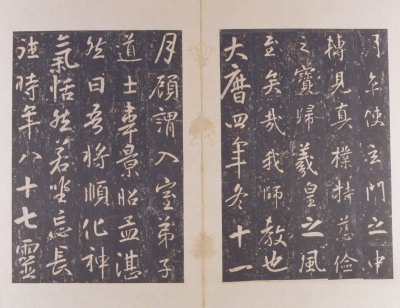 使玄門之中
轉見真樸持慈儉
之寶歸羲皇之風
至矣哉我師教也
大曆四年冬十一
月顧謂入室弟子
道士韋景昭孟湛
然曰吾將順化神
氣恬然若坐忘長
往時年八十七靈